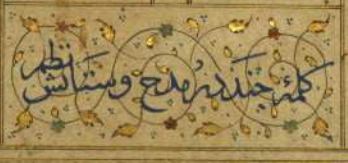 کلمهٔ چند در مدح و ستایش نظم